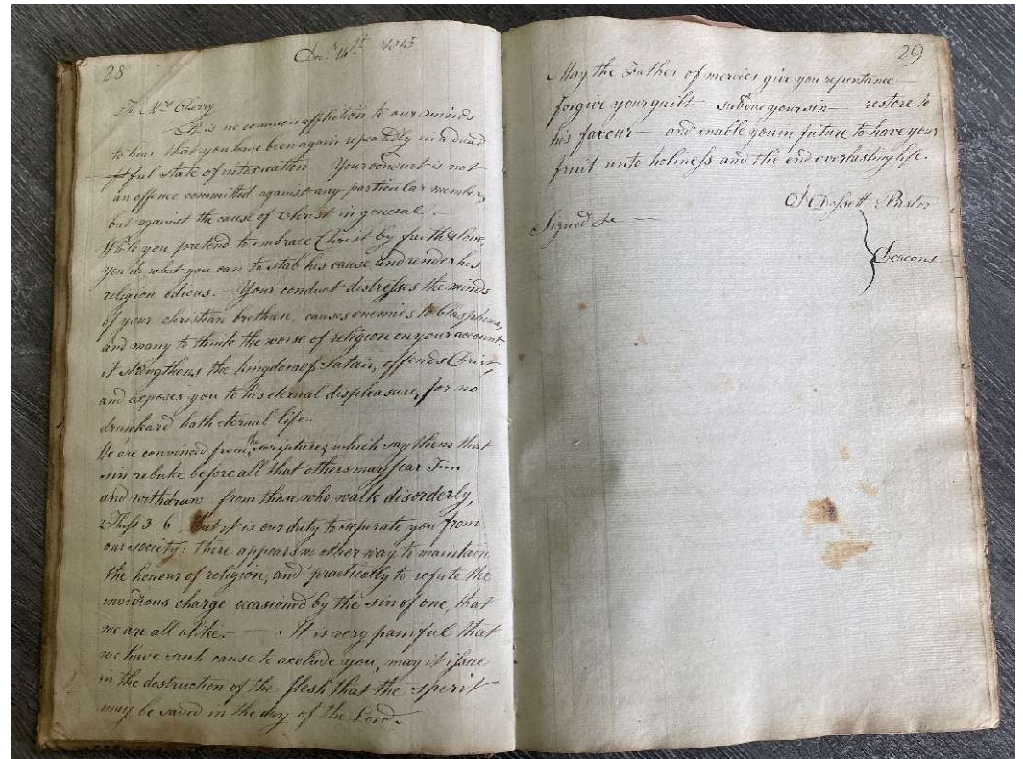 28
Decr 14th 1815
To Mrs Cherry
It is no common affliction to our minds
to hear that you have been again repeatedly in a dread
ful state of intoxication Your conduct is not
an offence committed against any particular member,
but against the cause of Christ in general.
While you pretend to embrace Christ by faith & love,
you do what you can to stab his cause and render his
religion odious. Your conduct distresses the minds
of your christian brethren, causes enemies to blaspheme,
and many to think the worse of religion on your account
it strengthens the kingdom of Satan, offends Christ,
and exposes you to his eternal displeasure, for no
drunkard hath eternal life.
We are convinced from the scriptures, which say them that
sin rebuke before all that others may fear Tim
and withdraw from those who walk disorderly,
2 Thess 3 6 that it is our duty to separate you from
our society: there appears no other way to maintain
the honour of religion, and practically to refute the
invidious charge occasioned by the sin of one, that
we are all alike. — It is very painful that
we have such cause to exclude you, may it issue
in the destruction of the flesh that the spirit
may be saved in the day of the Lord.
29
May the Father of mercies give you repentance —
forgive your guilt subdue your sin — restore to
his favour — and enable you in future to have your
fruit unto holiness and the end everlasting life.
Pastor
Signed &c —
Deacons